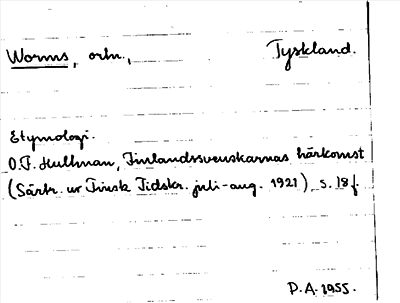 Worms, ortn., Tyskland.
Etymologi.
O.F. Hultman, Finlandssvenskarnas härkomst
(Särtr. ur Finsk Tidskr. juli-aug. 1921), s. 18 f.
P.A. 1955.